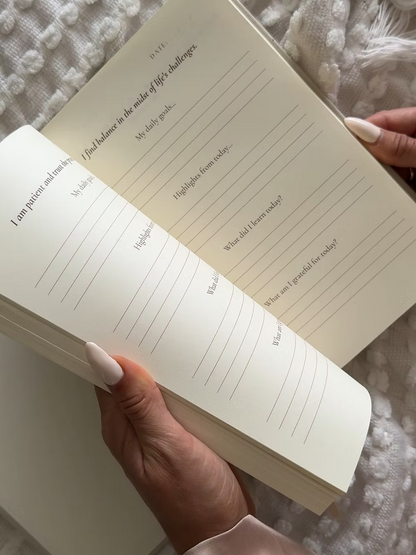 I am patient and
My daily
Highlights
What did
What am
DATE
I find balance in the midst of life's challenges.
My daily goals...
Highlights from today...
What did I learn today?
What am I grateful for today?